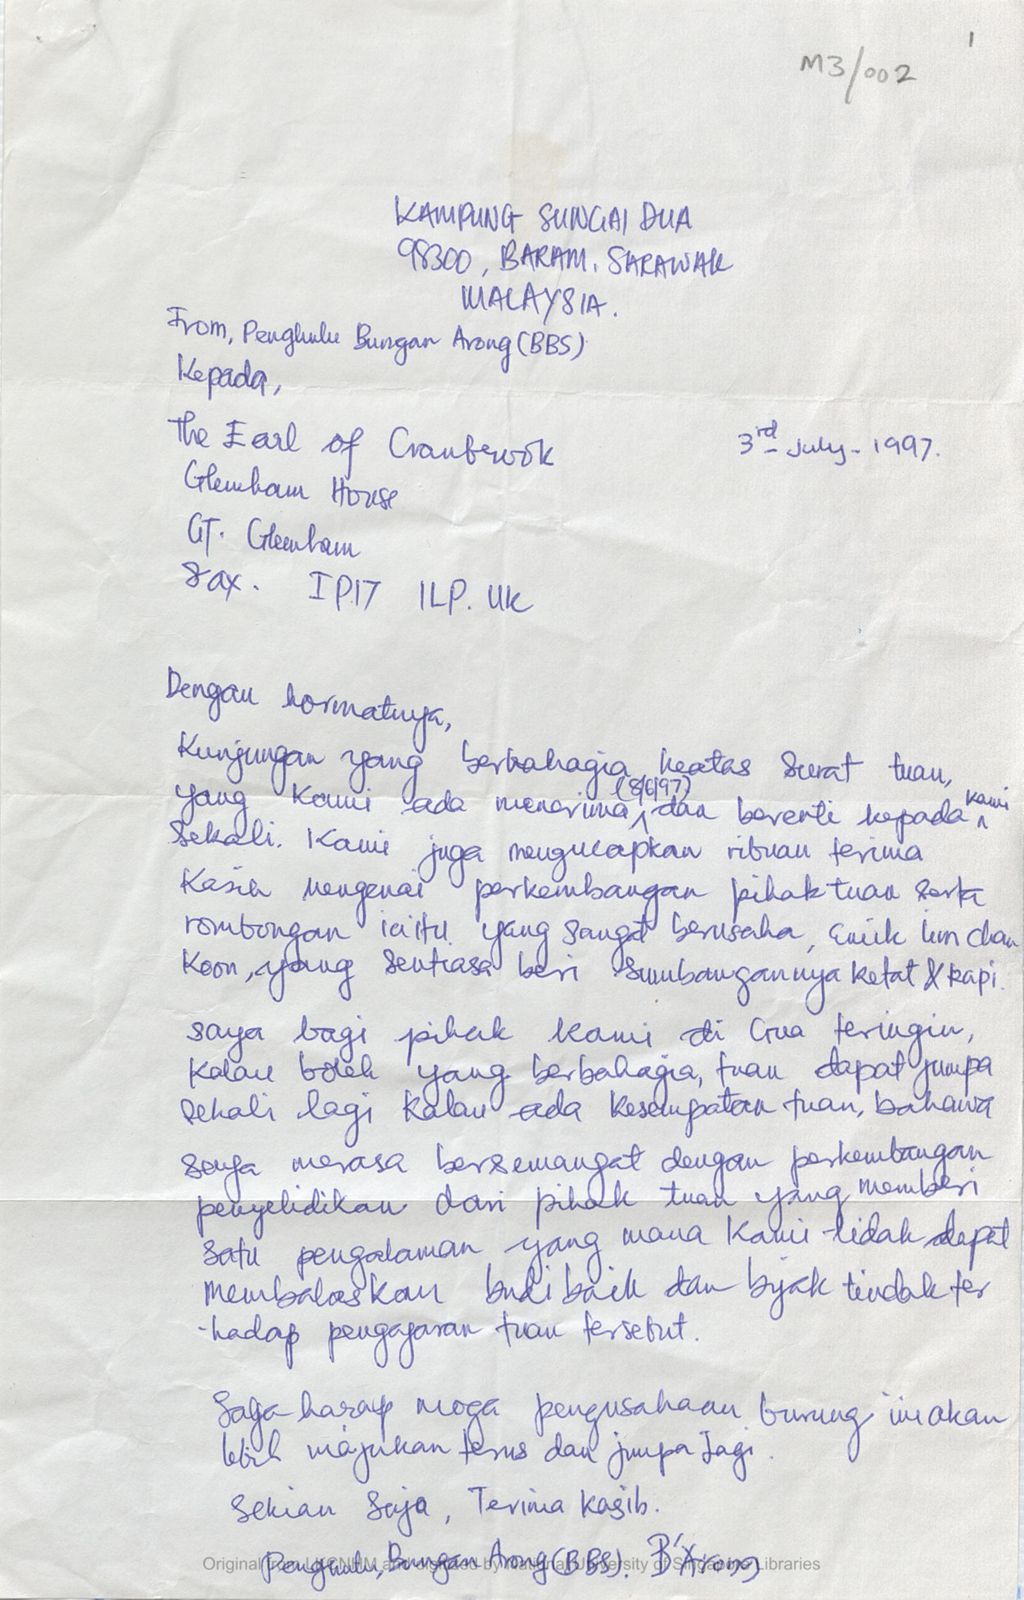 1
M3/002
KAMPUNG SUNGAI DUA
98300, BARAM. SARAWAK
MALAYSIA.
From, Penghulu Bungan Arong (BBS)
Kepada,
The Earl of Cranberook
3rd July - 1997.
Glemham House
GT. Glemham
Sax. IP17 1LP. UK
Dengan hormatnya,
Kunjungan yang berbahagia keatas surat tuan,
yang kami ada menerima (8/6/97) dan bererti kepada kami
sekali. Kami juga mengucapkan ribuan terima
kasih mengenai perkembangan pihak tuan serta
rombongan iaitu yang sangat berusaha, Encik Lim Chan
Koon, yang sentiasa beri sumbangannya ketat & rapi.
Saya bagi pihak kami di Gua teringin,
kalau boleh yang berbahagia, tuan dapat jumpa
sekali lagi kalau ada kesempatan tuan, bahawa
saya merasa bersemangat dengan perkembangan
penyelidikan dari pihak tuan yang memberi
satu pengalaman yang mana kami tidak dapat
membalaskan budi baik dan bijak tindak ter
-hadap pengajaran tuan tersebut.
Saya harap moga pengusahaan burung ini akan
lebih majukan terus dan jumpa lagi.
Sekian saja, Terima kasih.
Penghulu, Bungan Arong (BBS). B'Arong
Original from LKCNHM and digitised by National University of Singapore Libraries